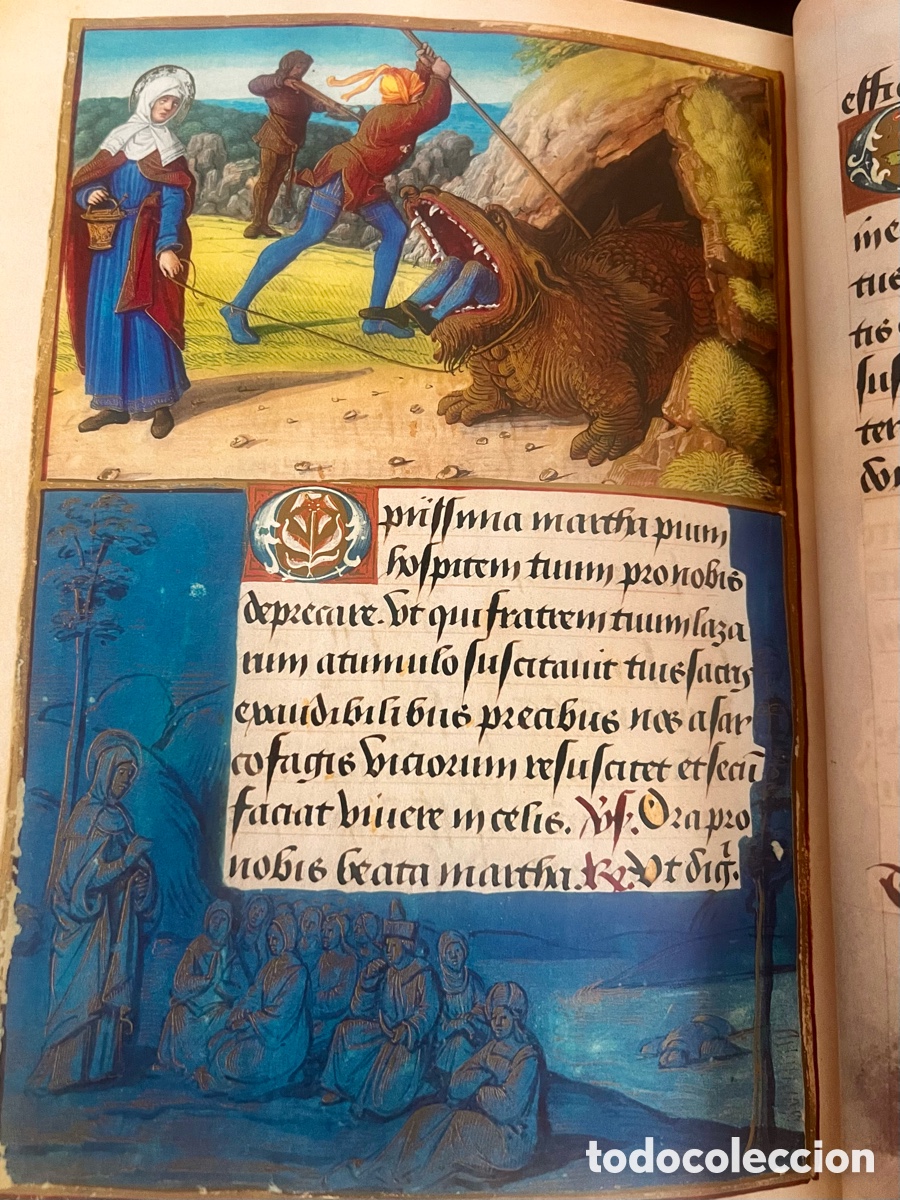 O piissima martha pium
hospitem tuum pro nobis
deprecare. Vt qui fratrem tuum laza
rum a tumulo suscitauit tuis sacris
exaudibilibus precibus nos a sar
cofagis viciorum resuscitet et secū
faciat viuere in celis. Vs. Ora pro
nobis beata martha. Rx. Vt dig̅.
me
tus
tis
sus
ter
todocoleccion